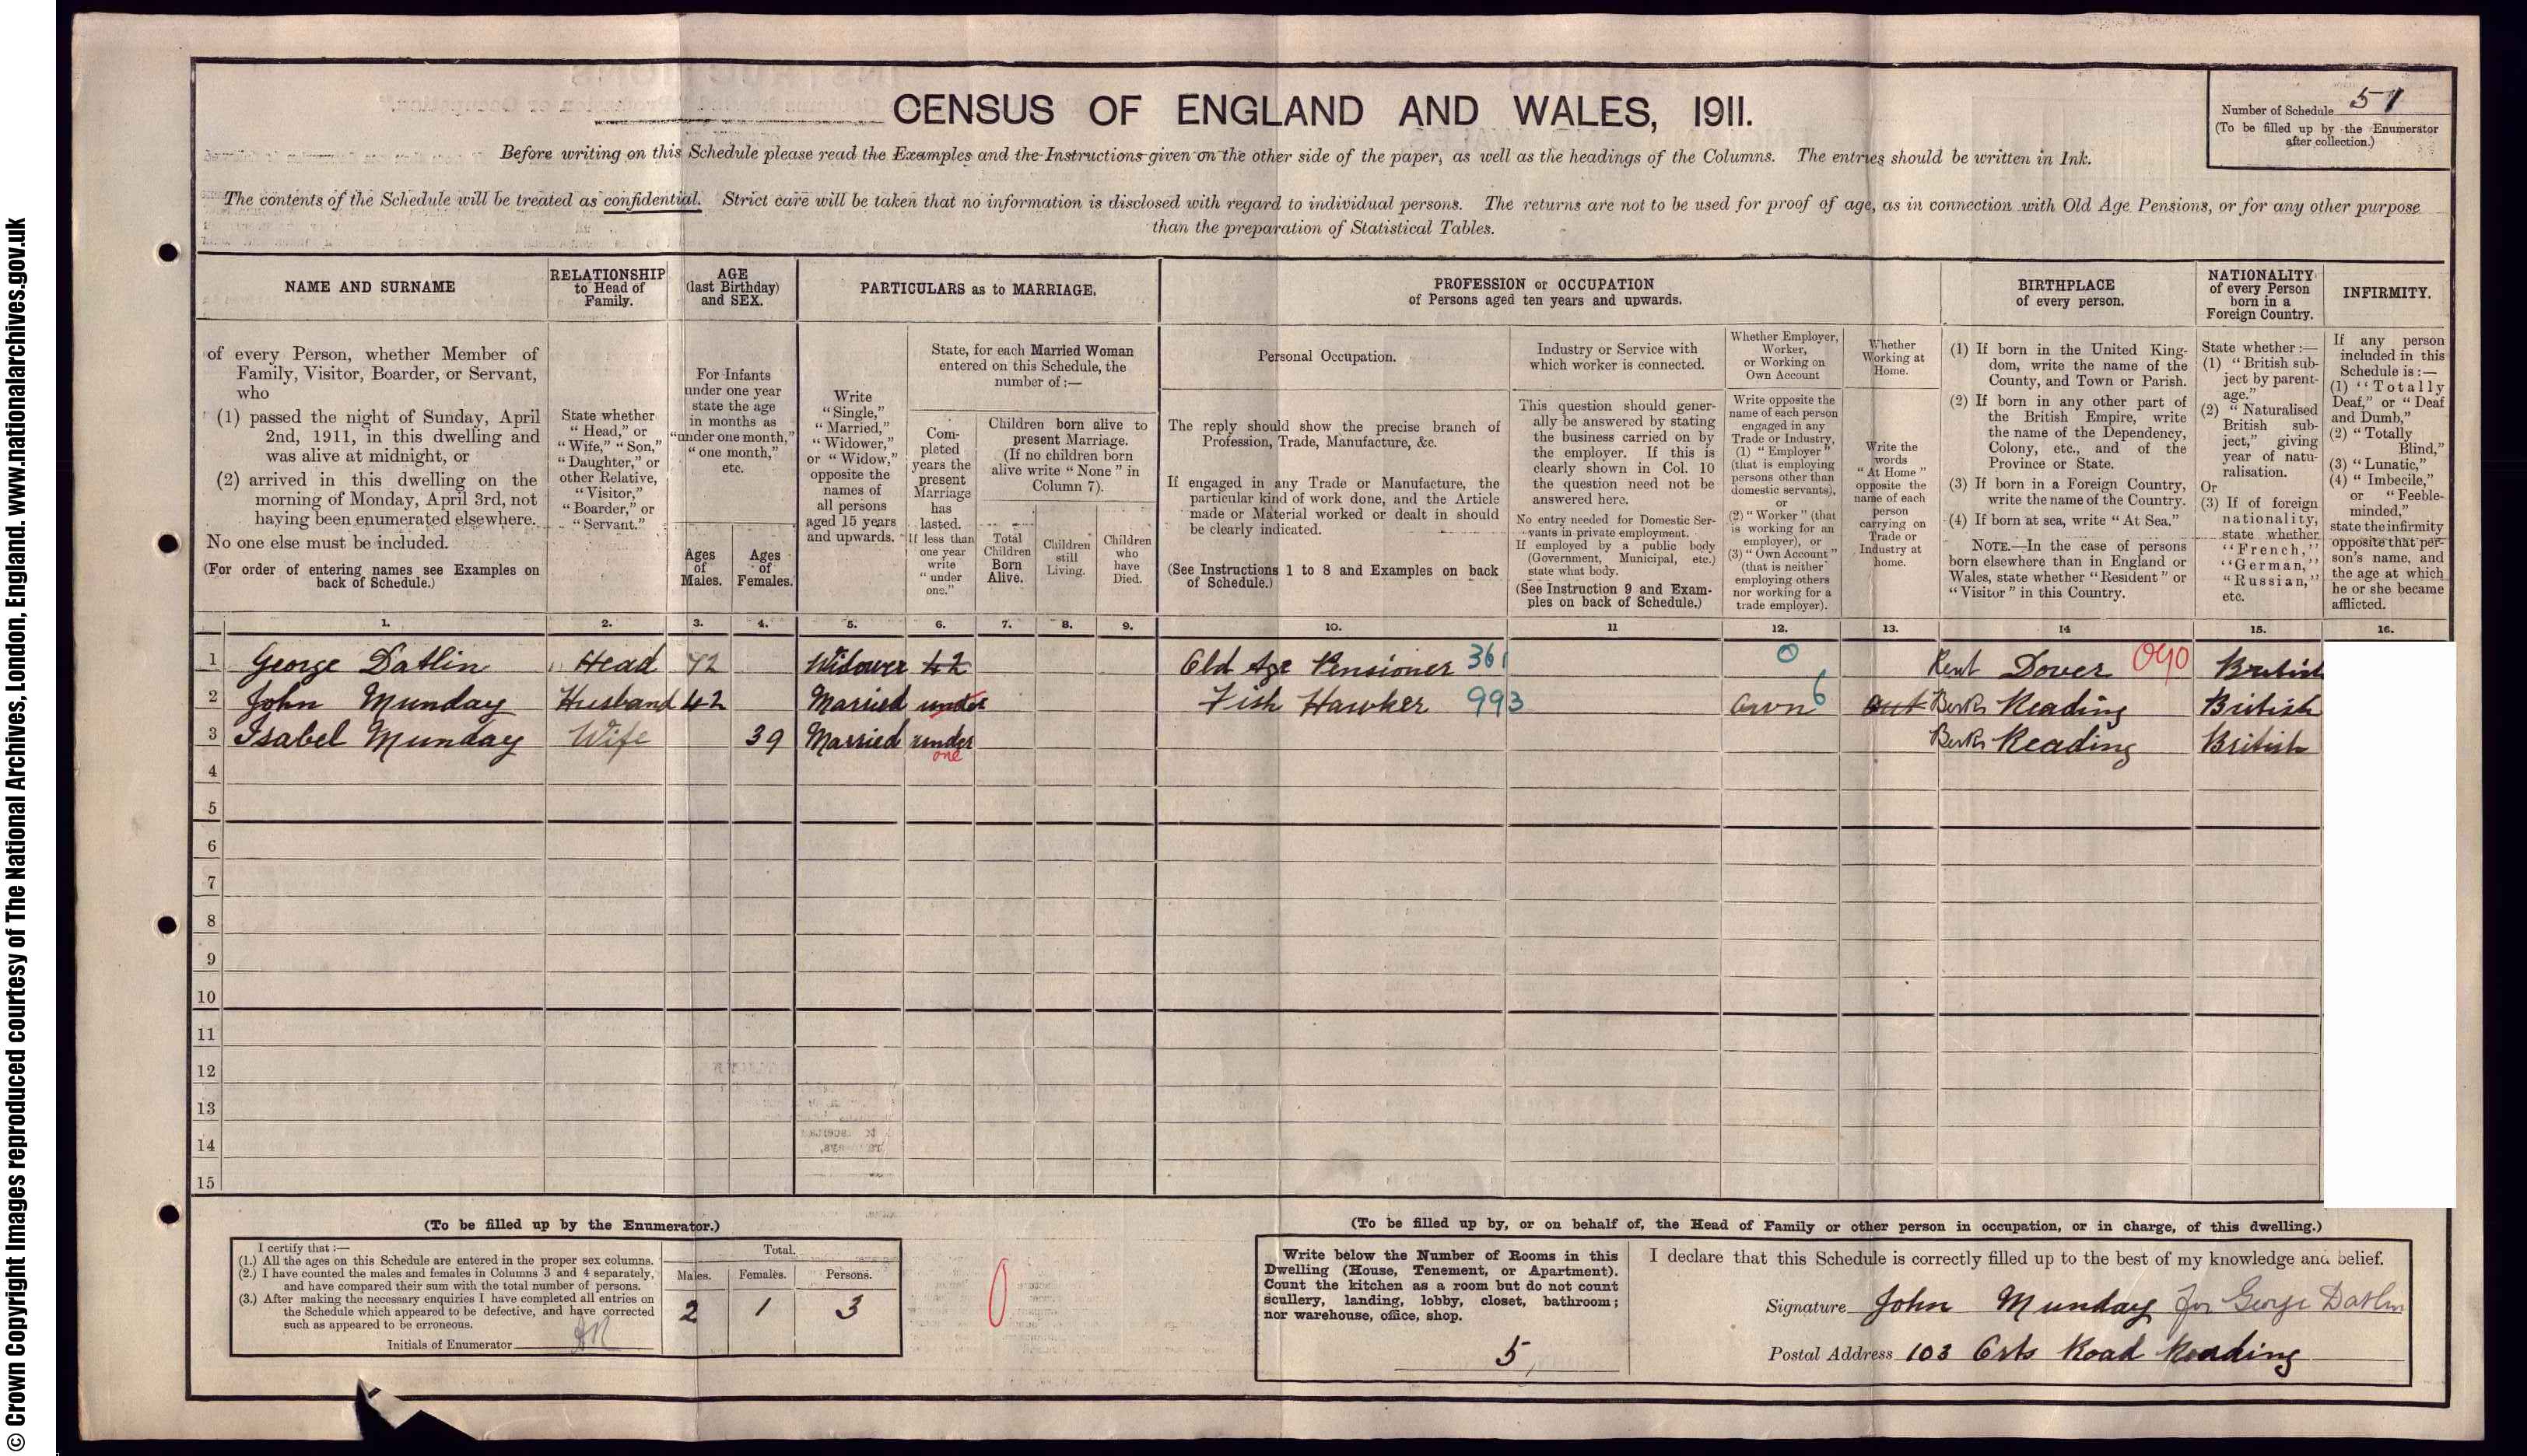 © Crown Copyright Images reproduced courtesy of The National Archives, London, England. www.nationalarchives.gov.uk
CENSUS OF ENGLAND AND WALES, 1911.
Number of Schedule 51
(To be filled up by the Enumerator
after collection.)
Before writing on this Schedule please read the Examples and the Instructions given on the other side of the paper, as well as the headings of the Columns. The entries should be written in Ink.
The contents of the Schedule will be treated as confidential. Strict care will be taken that no information is disclosed with regard to individual persons. The returns are not to be used for proof of age, as in connection with Old Age Pensions, or for any other purpose
than the preparation of Statistical Tables.
NAME AND SURNAME
of every Person, whether Member of
Family, Visitor, Boarder, or Servant,
who
(1) passed the night of Sunday, April
2nd, 1911, in this dwelling and
was alive at midnight, or
(2) arrived in this dwelling on the
morning of Monday, April 3rd, not
having been enumerated elsewhere.
No one else must be included.
(For order of entering names see Examples on
back of Schedule.)
RELATIONSHIP
to Head of
Family.
State whether
"Head," or
"Wife," "Son,"
"Daughter," or
other Relative,
"Visitor,"
"Boarder," or
"Servant."
AGE
(last Birthday)
and SEX.
For Infants
under one year
state the age
in months as
"under one month,"
"one month,"
etc.
Ages
of
Males.
Ages
of
Females.
PARTICULARS as to MARRIAGE.
Write
"Single,"
"Married,"
"Widower,"
or "Widow,"
opposite the
names of
all persons
aged 15 years
and upwards.
State, for each Married Woman
entered on this Schedule, the
number of :—
Com-
pleted
years the
present
Marriage
has
lasted.
If less than
one year
write
"under
one."
Children born alive to
present Marriage.
(If no children born
alive write "None" in
Column 7).
Total
Children
Born
Alive.
Children
still
Living.
Children
who
have
Died.
PROFESSION or OCCUPATION
of Persons aged ten years and upwards.
Personal Occupation.
The reply should show the precise branch of
Profession, Trade, Manufacture, &c.
If engaged in any Trade or Manufacture, the
particular kind of work done, and the Article
made or Material worked or dealt in should
be clearly indicated.
(See Instructions 1 to 8 and Examples on back
of Schedule.)
Industry or Service with
which worker is connected.
This question should gener-
ally be answered by stating
the business carried on by
the employer. If this is
clearly shown in Col. 10
the question need not be
answered here.
No entry needed for Domestic Ser-
vants in private employment.
If employed by a public body
(Government, Municipal, etc.)
state what body.
(See Instruction 9 and Exam-
ples on back of Schedule.)
Whether Employer,
Worker,
or Working on
Own Account
Write opposite the
name of each person
engaged in any
Trade or Industry,
(1) "Employer"
(that is employing
persons other than
domestic servants),
or
(2) "Worker" (that
is working for an
employer), or
(3) "Own Account"
(that is neither
employing others
nor working for a
trade employer).
Whether
Working at
Home.
Write the
words
"At Home"
opposite the
name of each
person
carrying on
Trade or
Industry at
home.
BIRTHPLACE
of every person.
(1) If born in the United King-
dom, write the name of the
County, and Town or Parish.
(2) If born in any other part of
the British Empire, write
the name of the Dependency,
Colony, etc., and of the
Province or State.
(3) If born in a Foreign Country,
write the name of the Country.
(4) If born at sea, write "At Sea."
NOTE.—In the case of persons
born elsewhere than in England or
Wales, state whether "Resident" or
"Visitor" in this Country.
NATIONALITY
of every Person
born in a
Foreign Country.
State whether :—
(1) "British sub-
ject by parent-
age."
(2) "Naturalised
British sub-
ject," giving
year of natu-
ralisation.
Or
(3) If of foreign
nationality,
state whether
"French,"
"German,"
"Russian,"
etc.
INFIRMITY.
If any person
included in this
Schedule is :—
(1) "Totally
Deaf," or "Deaf
and Dumb,"
(2) "Totally
Blind,"
(3) "Lunatic,"
(4) "Imbecile,"
or "Feeble-
minded,"
state the infirmity
opposite that per-
son's name, and
the age at which
he or she became
afflicted.
1. 2. 3. 4. 5. 6. 7. 8. 9. 10. 11 12. 13. 14 15. 16.
1 George Datlin Head 72 Widower 42 Old Age Pensioner 361 0 Kent Dover 090 British
2 John Munday Husband 42 Married under Fish Hawker 993 Own 6 out Berks Reading British
3 Isabel Munday Wife 39 Married under one Berks Reading British
4
5
6
7
8
9
10
11
12
13
14
15
(To be filled up by the Enumerator.)
I certify that :—
(1.) All the ages on this Schedule are entered in the proper sex columns.
(2.) I have counted the males and females in Columns 3 and 4 separately,
and have compared their sum with the total number of persons.
(3.) After making the necessary enquiries I have completed all entries on
the Schedule which appeared to be defective, and have corrected
such as appeared to be erroneous.
Initials of Enumerator
Total.
Males. Females. Persons.
2 1 3
0
(To be filled up by, or on behalf of, the Head of Family or other person in occupation, or in charge, of this dwelling.)
Write below the Number of Rooms in this
Dwelling (House, Tenement, or Apartment).
Count the kitchen as a room but do not count
scullery, landing, lobby, closet, bathroom;
nor warehouse, office, shop.
5
I declare that this Schedule is correctly filled up to the best of my knowledge and belief.
Signature John Munday for George Datlin
Postal Address 103 Orts Road Reading